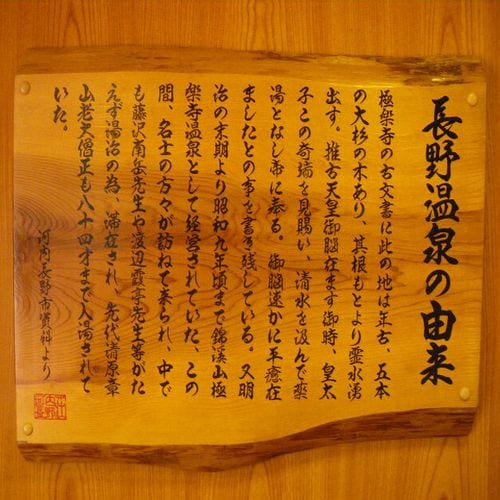 長野温泉の由来
極楽寺の古文書に此の地は年古、五本
の大杉の木あり、其根もとより霊水湧
出す。推古天皇御脳在ます御時、皇太
子この奇瑞を見賜い、清水を汲んで薬
湯となし帝に奉る。御脳速かに平癒在
ましたとの事を書き残している。又明
治の末期より昭和九年頃まで錦渓山極
楽寺温泉として経営されていた、この
間、名士の方々が訪ねて来られ、中で
も藤沢南岳先生や渡辺霞亭先生等がた
えず湯治の為、滞在され、先代清原章
山老大僧正も八十四才まで入湯されて
いた。
河内長野市資料より